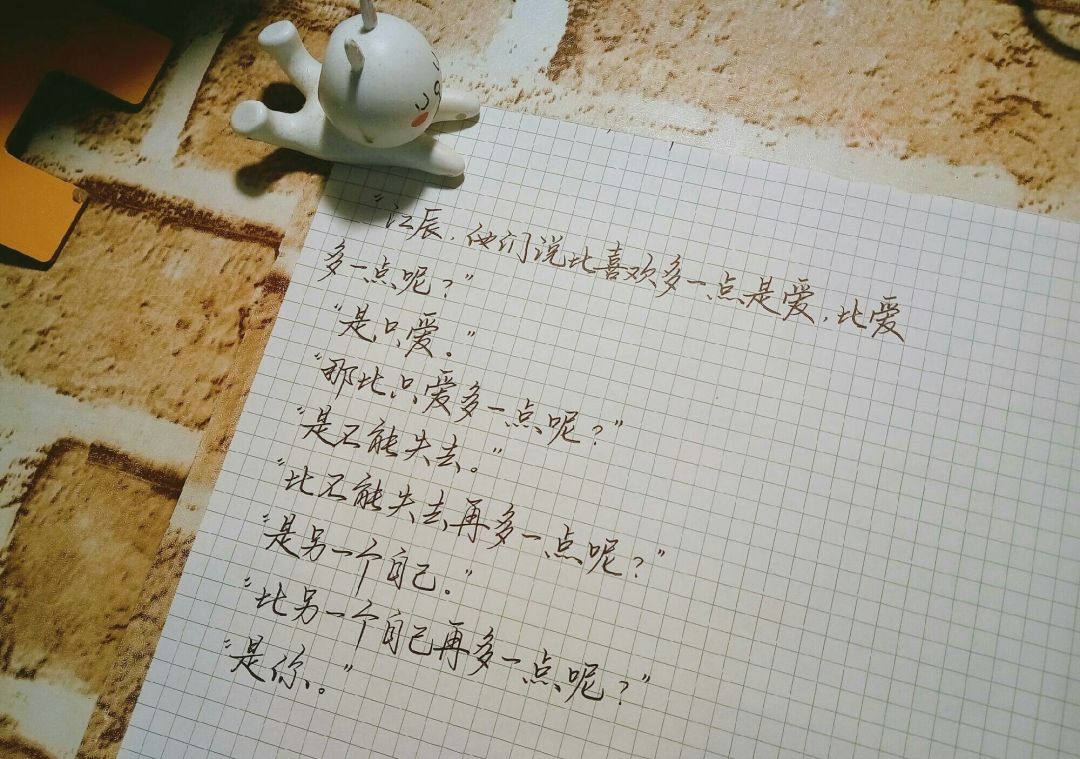 “江辰，他们说比喜欢多一点是爱，比爱
多一点呢？”
“是只爱。”
“那比只爱多一点呢？”
“是不能失去。”
“比不能失去再多一点呢？”
“是另一个自己。”
“比另一个自己再多一点呢？”
“是你。”